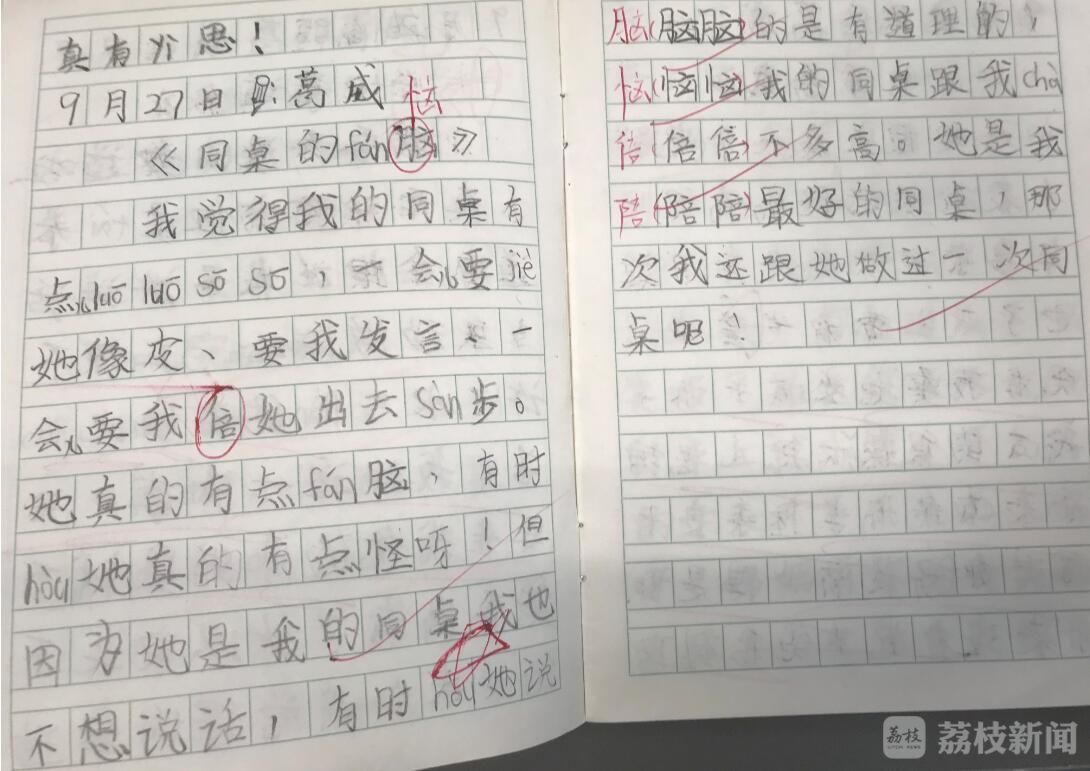 真有yi思！
9月27日 葛威
恼
《同桌的fán脑》
我觉得我的同桌有
点儿luō luō sō sō，一会儿要jiè
她像皮、要我发言、一
会儿要我倍她出去sàn步。
她真的有点fán脑，有时
hòu她真的有点怪呀！但
因为她是我的同桌我也
不想说话，有时hòu她说
脑(脑脑)的是有道理的，
恼(恼恼)我的同桌跟我chà
倍(倍倍)不多高。她是我
陪(陪陪)最好的同桌，那
次我还跟她做过一次同
桌呢！
荔枝
LITCHI NEWS
荔枝新闻